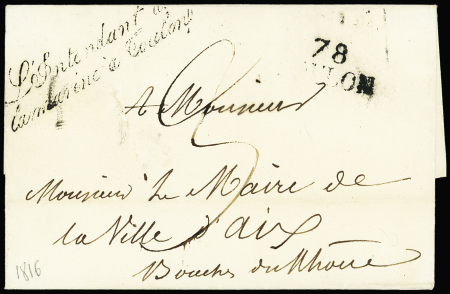 L'Intendant de
la marine à Toulon
78
OULON
A Monsieur
Monsieur Le Maire de
la Ville d'aix
Bouches du Rhône
1816